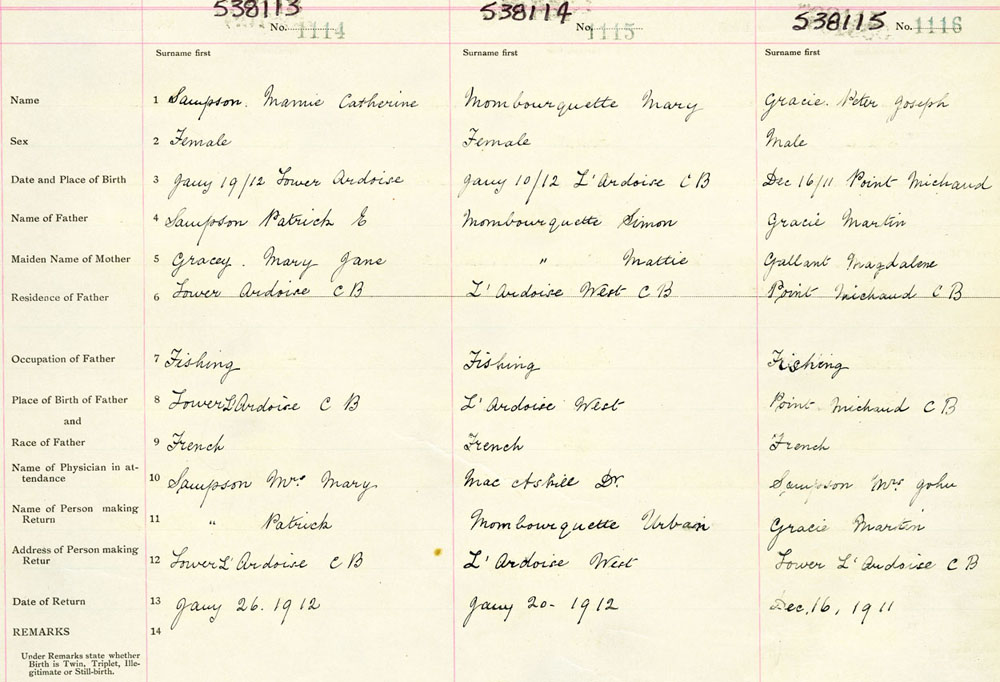 538113 538114 538115
No. 1114 No. 1115 No. 1116
Surname first Surname first Surname first
Name 1 Sampson. Mamie Catherine Mombourquette Mary Gracie. Peter Joseph
Sex 2 Female Female Male
Date and Place of Birth 3 Jany 19/12 Lower Ardoise Jany 10/12 L'Ardoise C B Dec 16/11 Point Michaud
Name of Father 4 Sampson Patrick E Mombourquette Simon Gracie Martin
Maiden Name of Mother 5 Gracey. Mary Jane " Mattie Gallant Magdalene
Residence of Father 6 Lower Ardoise C B L'Ardoise West C B Point Michaud C B
Occupation of Father 7 Fishing Fishing Fishing
Place of Birth of Father 8 Lower L'Ardoise C B L'Ardoise West Point Michaud C B
and
Race of Father 9 French French French
Name of Physician in at-
tendance 10 Sampson Mrs Mary Mac Askill Dr. Sampson Mrs John
Name of Person making
Return 11 " Patrick Mombourquette Urbain Gracie Martin
Address of Person making
Retur 12 Lower L'Ardoise C B L'Ardoise West Lower L'Ardoise C B
Date of Return 13 Jany 26. 1912 Jany 20- 1912 Dec, 16, 1911
REMARKS 14
Under Remarks state whether
Birth is Twin, Triplet, Ille-
gitimate or Still-birth.